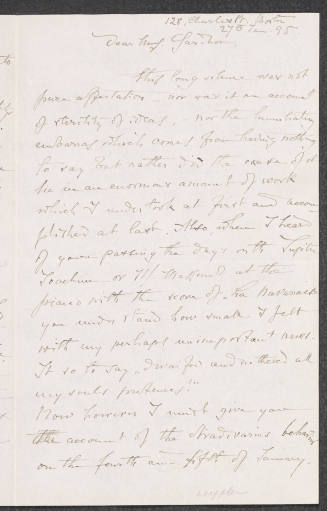 128, Charles St. Boston
27th Jan. 95
Dear Mrs. Gardner
This long silence was not
pure affectation - nor was it on account
of sterility of ideas, - nor the humiliating
embarras which comes from having nothing
to say but rather did the cause of it
lie in an enormous amount of work
which I undertook at first and accom-
plished at last. Also, when I heard
of your passing the days with
Joachim or Massenet at the
piano with the score of La Navarraise
you understand how small I felt
with my perhaps unimportant news.
It so to say, dwarfed and withered all
my souls pretenses!"
Now however I must give you
the account of the Stradivarius behavior
on the fourth and fifth of January.